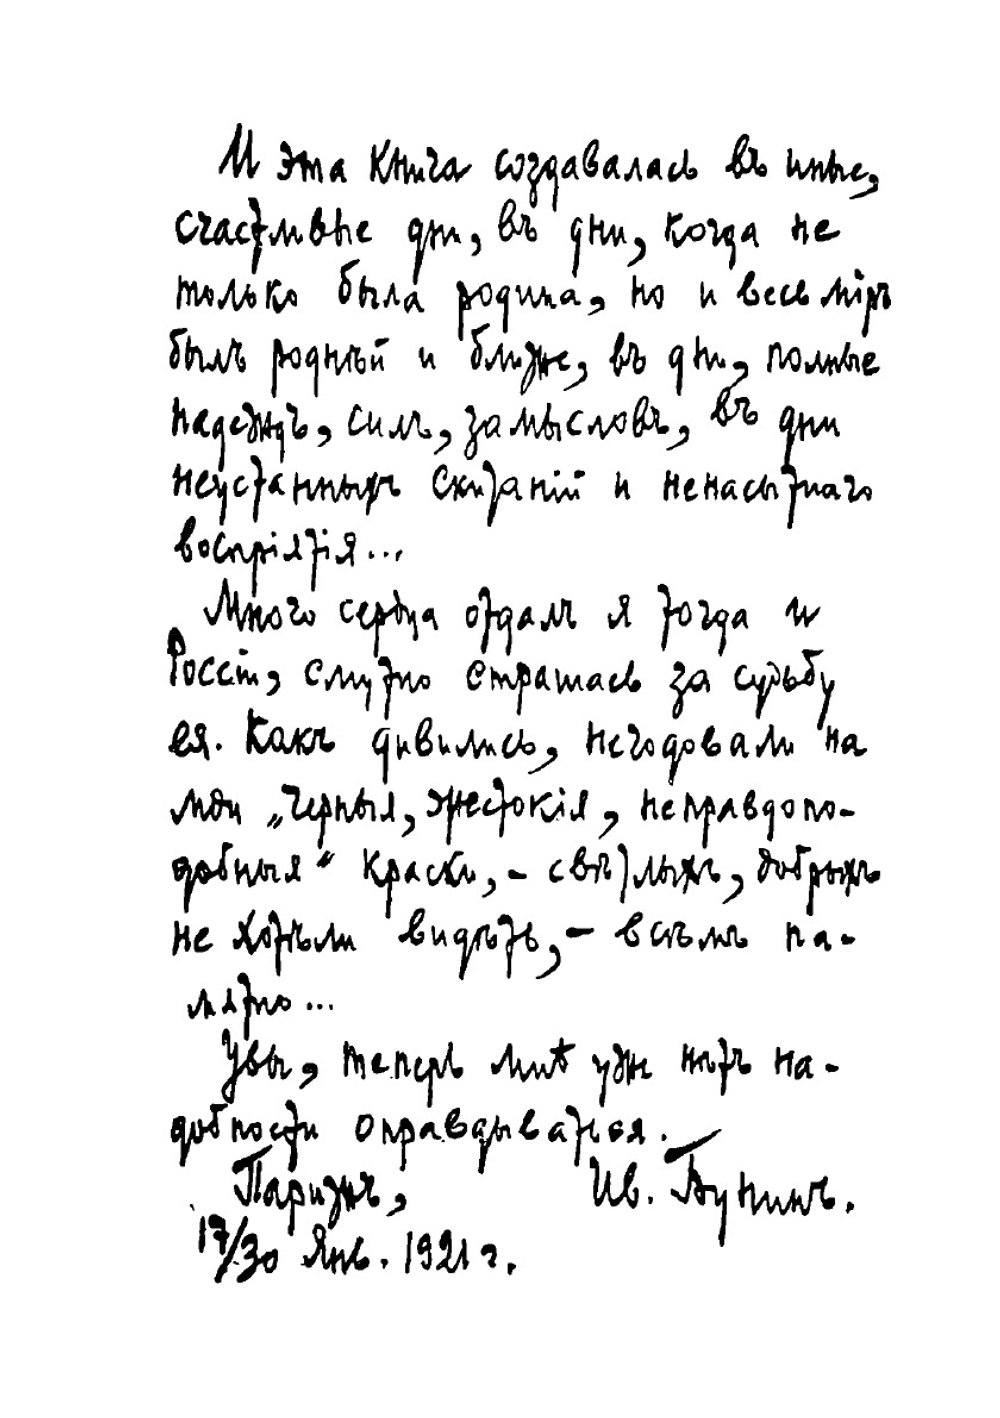 И эта книга создавалась въ иные,
счастливые дни, въ дни, когда не
только была родина, но и весь мiръ
былъ роднѣй и ближе, въ дни, полные
надеждъ, силъ, замысловъ, въ дни
неустанныхъ скитанiй и ненасытнаго
воспрiятiя...
Много сердца отдалъ я тогда и
Россiи, смутно страшась за судьбу
ея. Какъ дивились, негодовали на
мои „черныя, жестокiя, неправдопо-
добныя“ краски, – свѣтлыхъ, добрыхъ
не хотѣли видѣть, – всѣмъ па-
мятно...
Увы, теперь мнѣ уж нѣтъ на-
добности оправдываться.
Парижъ, Ив. Бунинъ.
17/30 Янв. 1921 г.